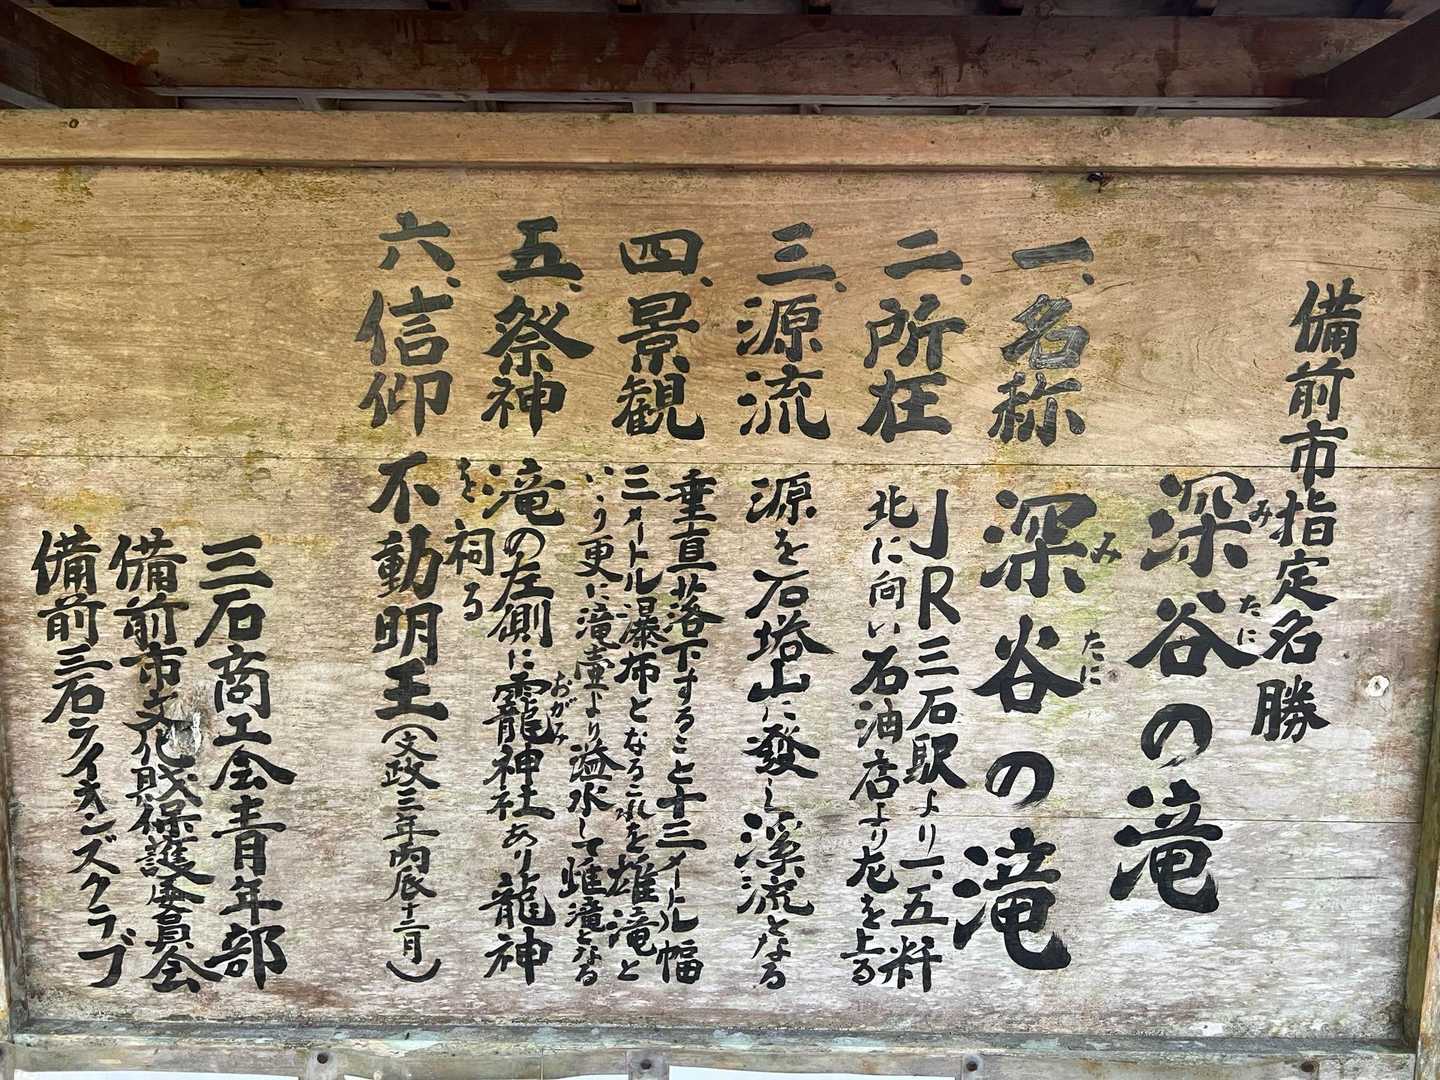 備前市指定名勝
深谷の滝
みたに
一、名称
深谷の滝
みたに
二、所在
JR三石駅より一、五粁
北に向い石油店より左を上る
三、源流
源を石塔山に發し渓流となる
四、景観
垂直落下すること十三メートル幅
三メートル瀑布となるこれを雄滝と
いゝ更に滝壷より溢水して雌滝となる
五、祭神
滝の左側に龗神社あり龍神
おがみ
を祠る
六、信仰
不動明王(文政三年丙辰十二月)
三石商工会青年部
備前市文化財保護委員会
備前三石ライオンズクラブ